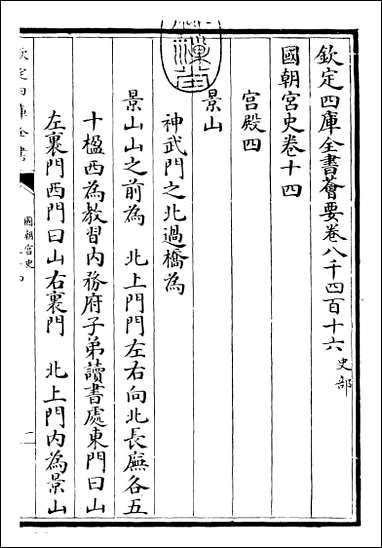 欽定四庫全書薈要卷八千四百十六 史部
國朝宮史卷十四
宮殿四
景山
神武門之北過橋為
景山山之前為 北上門門左右向北長廡各五
十楹西為教習内務府子弟讀書處東門曰山
左裏門西門曰山右裏門 北上門内為景山
欽定四庫全書
國朝宮史